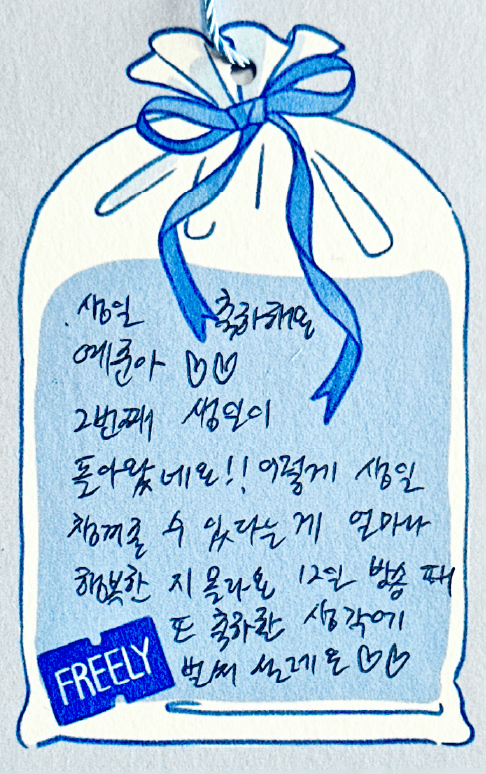 생일 축하해요
예준아 ♡♡
2번째 생일이
돌아왔네요!! 이렇게 생일
챙겨줄 수 있다는게 얼마나
행복한 지 몰라요 12일 방송 때
또 축하할 생각에
벌써 설레요 ♡♡
FREELY